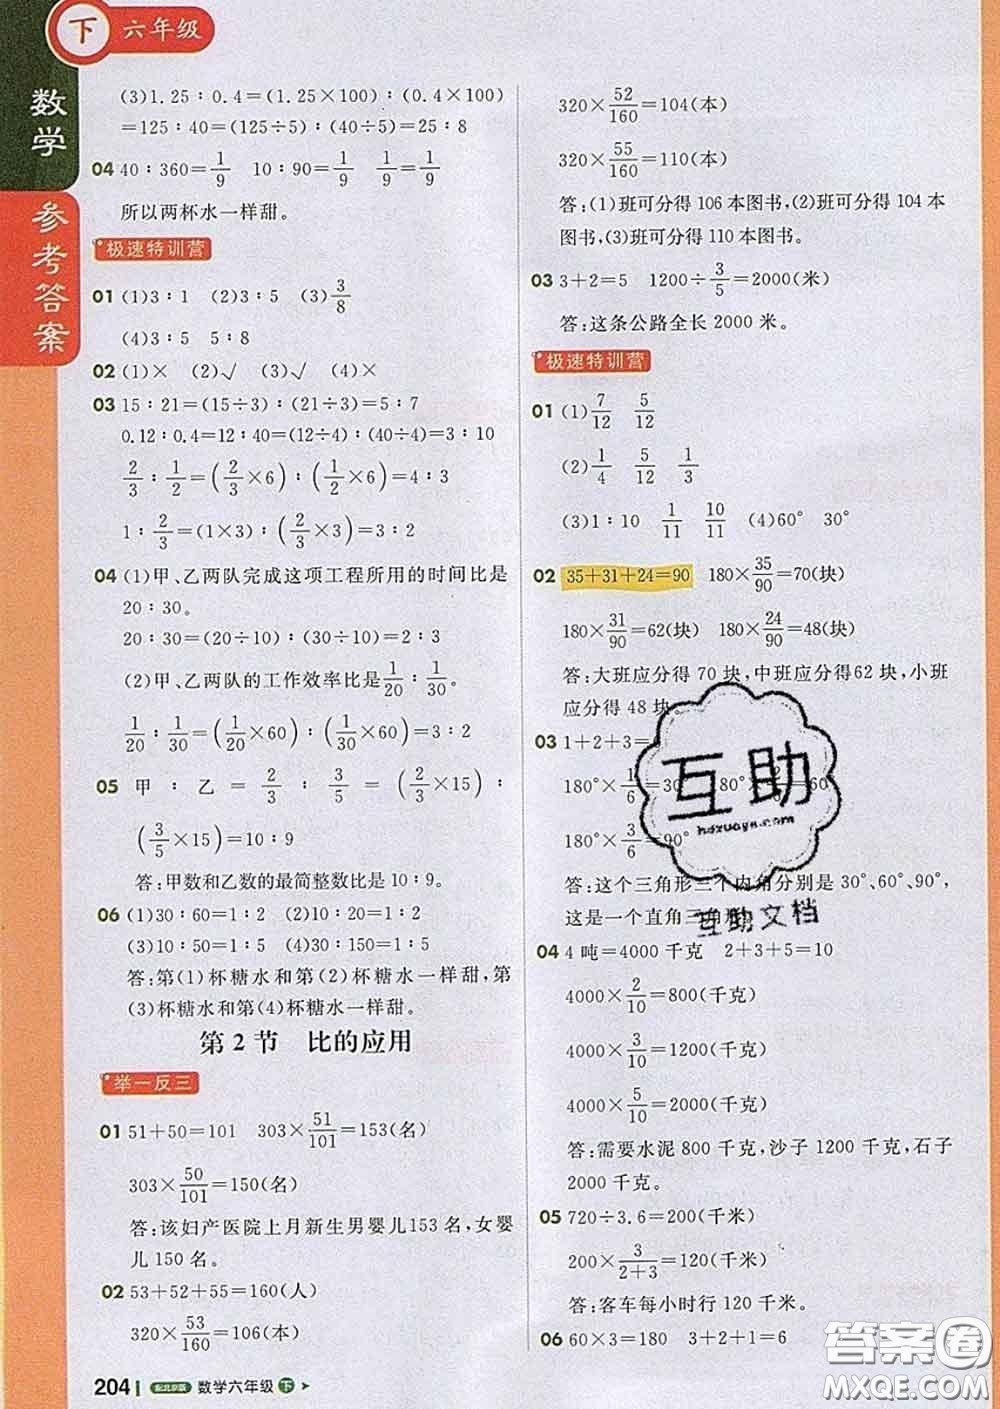 下 六年级
数学
参考答案
(3)1.25∶0.4=(1.25×100)∶(0.4×100)
=125∶40=(125÷5)∶(40÷5)=25∶8
04 40∶360=1/9 10∶90=1/9 1/9=1/9
所以两杯水一样甜。
极速特训营
01 (1)3∶1 (2)3∶5 (3)3/8
(4)3∶5 5∶8
02 (1)× (2)√ (3)√ (4)×
03 15∶21=(15÷3)∶(21÷3)=5∶7
0.12∶0.4=12∶40=(12÷4)∶(40÷4)=3∶10
2/3∶1/2=(2/3×6)∶(1/2×6)=4∶3
1∶2/3=(1×3)∶(2/3×3)=3∶2
04 (1)甲、乙两队完成这项工程所用的时间比是
20∶30。
20∶30=(20÷10)∶(30÷10)=2∶3
(2)甲、乙两队的工作效率比是1/20∶1/30。
1/20∶1/30=(1/20×60)∶(1/30×60)=3∶2
05 甲∶乙=2/3∶3/5=(2/3×15)∶
(3/5×15)=10∶9
答:甲数和乙数的最简整数比是10∶9。
06 (1)30∶60=1∶2 (2)10∶20=1∶2
(3)10∶50=1∶5 (4)30∶150=1∶5
答:第(1)杯糖水和第(2)杯糖水一样甜,第
(3)杯糖水和第(4)杯糖水一样甜。
第2节 比的应用
举一反三
01 51+50=101 303×51/101=153(名)
303×50/101=150(名)
答:该妇产医院上月新生男婴儿153名,女婴
儿150名。
02 53+52+55=160(人)
320×53/160=106(本)
204 配北京版 数学六年级 下
320×52/160=104(本)
320×55/160=110(本)
答:(1)班可分得106本图书,(2)班可分得104本
图书,(3)班可分得110本图书。
03 3+2=5 1200÷3/5=2000(米)
答:这条公路全长2000米。
极速特训营
01 (1)7/12 5/12
(2)1/4 5/12 1/3
(3)1∶10 1/11 10/11 (4)60° 30°
02 35+31+24=90 180×35/90=70(块)
180×31/90=62(块) 180×24/90=48(块)
答:大班应分得70块,中班应分得62块,小班
应分得48块。
03 1+2+3=6
180°×1/6=30° 180°×2/6=60°
180°×3/6=90°
答:这个三角形三个内角分别是30°、60°、90°,
这是一个直角三角形。
04 4吨=4000千克 2+3+5=10
4000×2/10=800(千克)
4000×3/10=1200(千克)
4000×5/10=2000(千克)
答:需要水泥800千克,沙子1200千克,石子
2000千克。
05 720÷3.6=200(千米)
200×3/2+3=120(千米)
答:客车每小时行120千米。
06 60×3=180 3+2+1=6
互助
hdzuoye.com
互助文档
答案圈
MXQE.COM